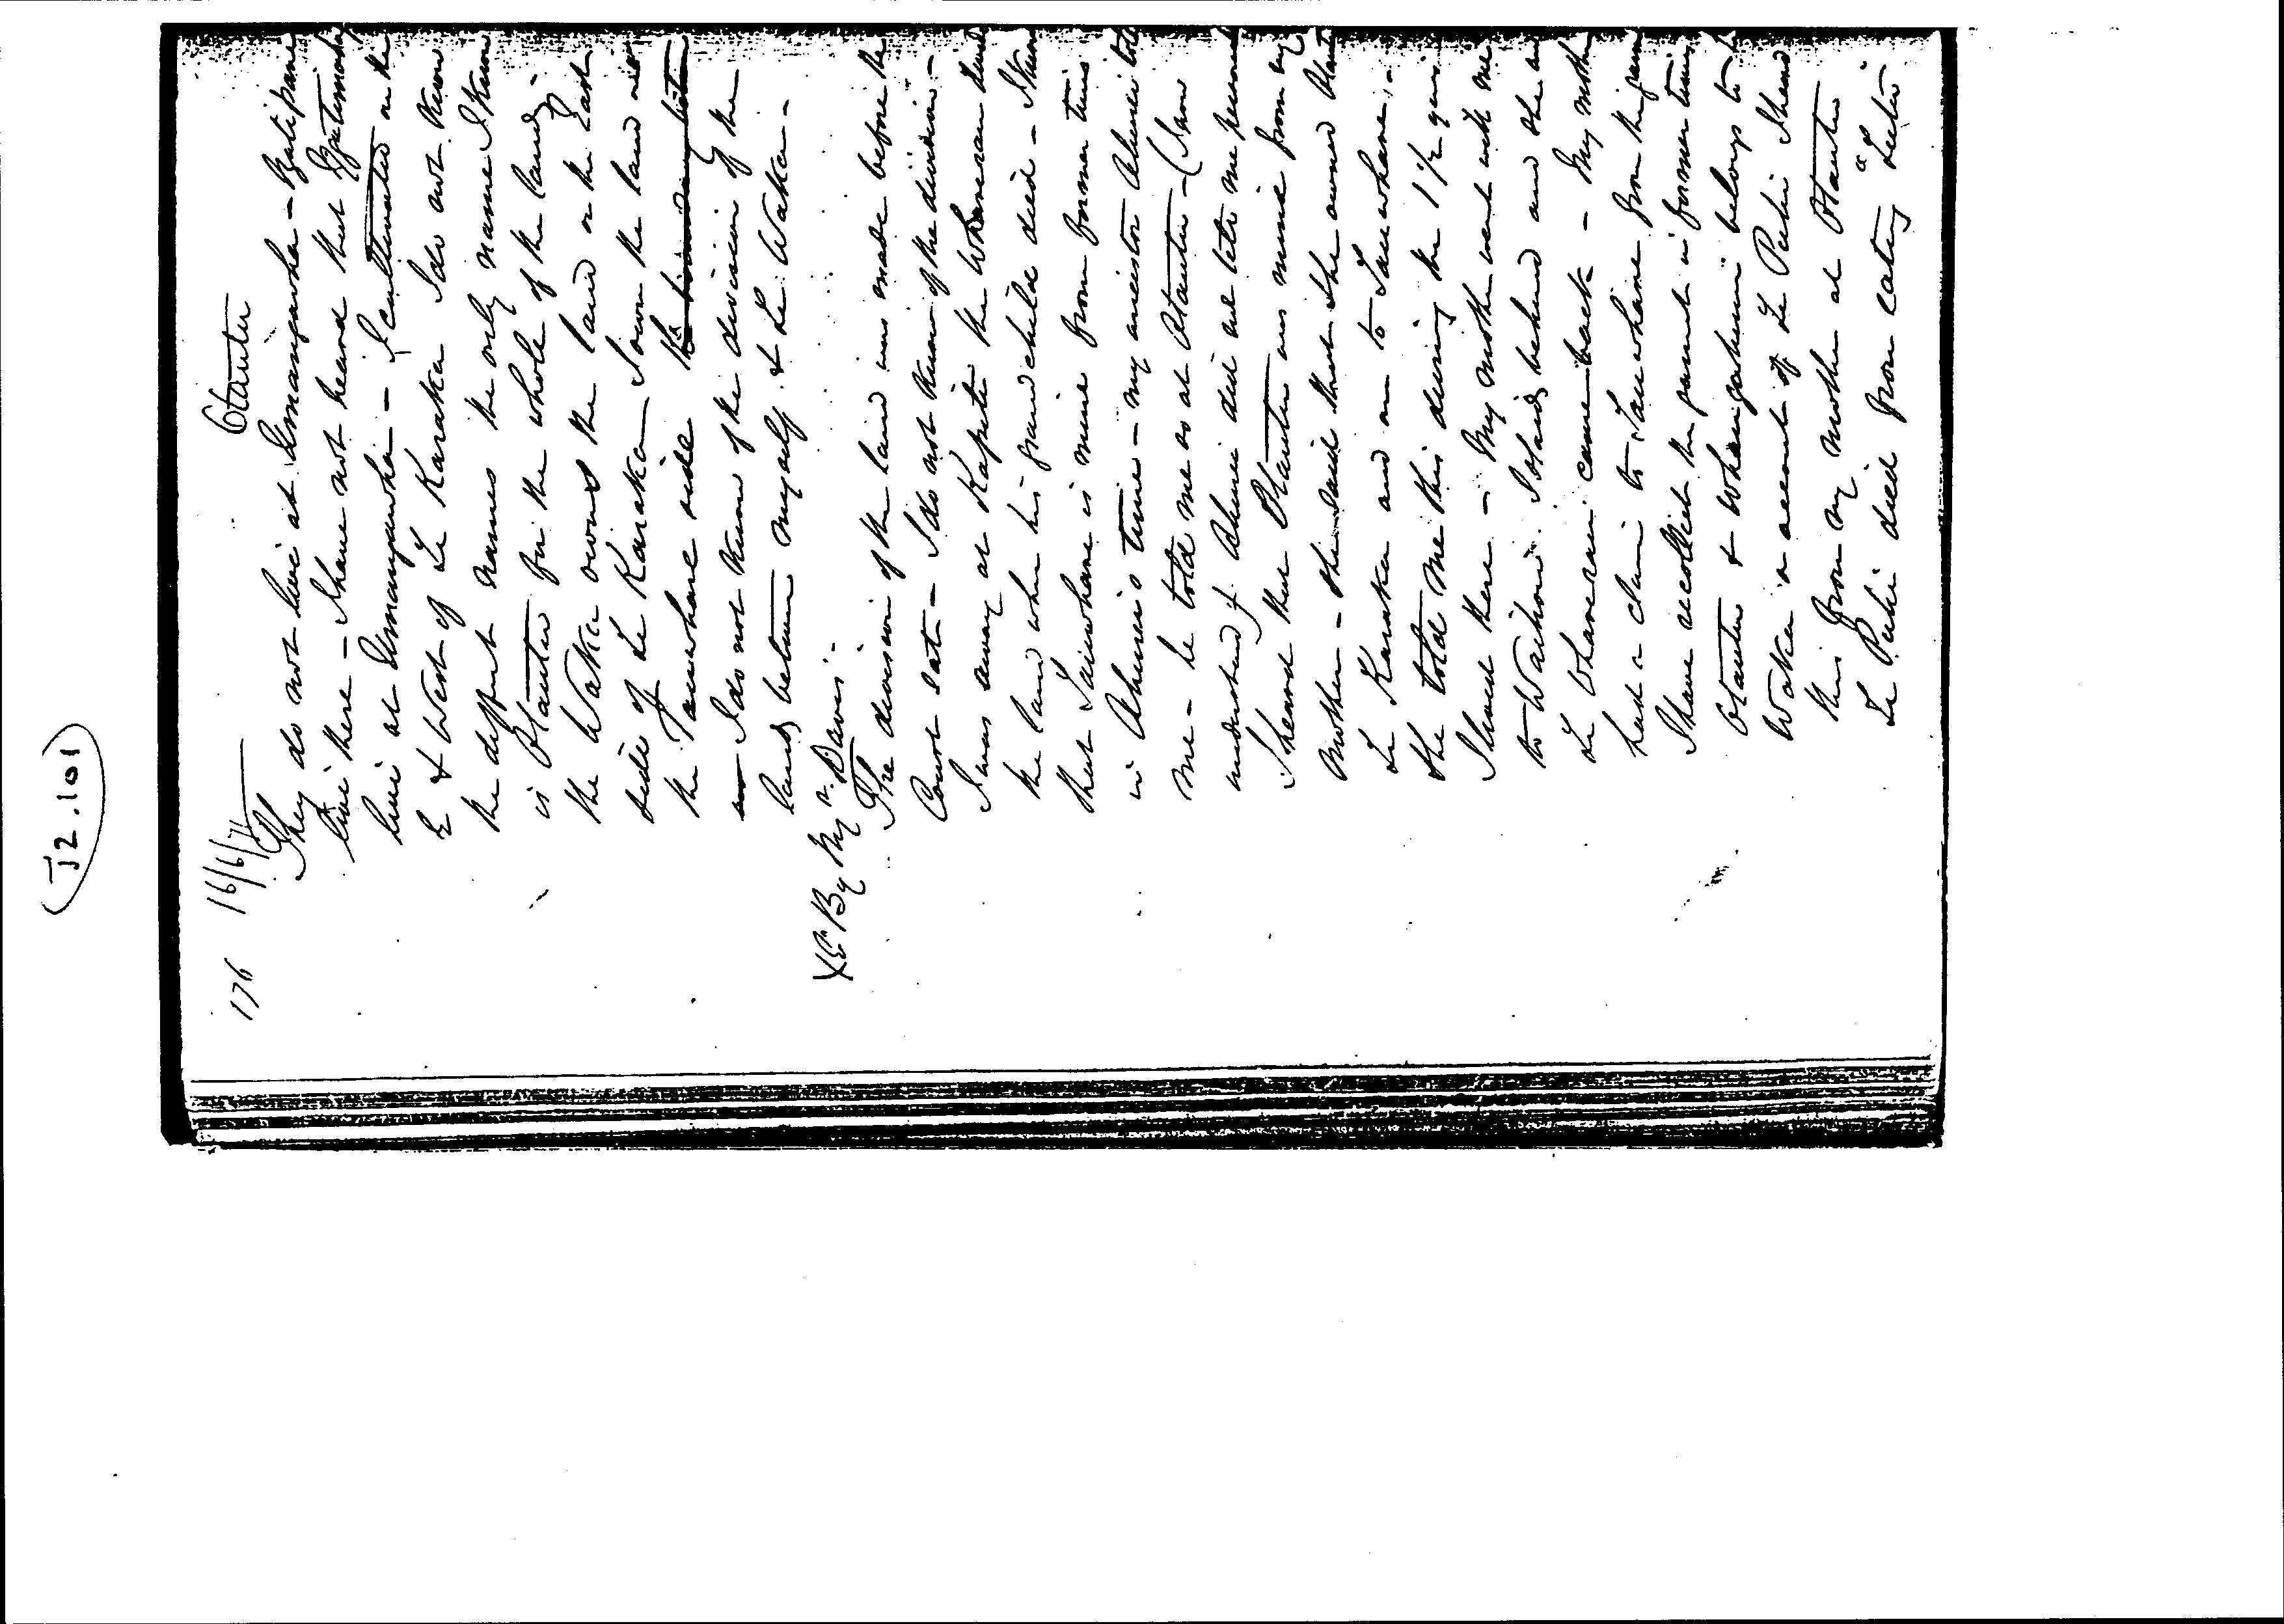 (J2.101)
176 16/6/71 Otautu
They do not live at Umangawha - Ngatipare
live there - I have not heard that Ngatimoko
live at Umangawha - I cultivated on the
E & West of Te Karaka I do not know
the diffrt names the only name I know
is Otautu for the whole of the land -
the Waka owns the land on the East
side of Te Karaka - I own the land on
the Tauwhare side the
I do not know of the division of the
land between myself & Te Waka -
XEd By Mr Davis -
The division of the land was made before the
Court sat - I do not know of the division -
I was away at Kapiti the Whanerau had
the land when his grandchild died - I know
that Tauwhare is mine from former times
in Ahurei's time - my ancestor Ahurei told
me - he told me as at Otautu - (I now
understand) Ahurei did not tell me personal
I heard that Otautu was mine from my
mother - she said that she owned Otautu
Te Karaka and on to Tauwhare, -
She told me this during the 1 1/2 years
I lived there - My mother went with me
to Waihou. I stayd behind and she an
Te Whanerau came back - My mother
had a claim to Tauwhare from his
I have recollect the parents in former times
Otautu & Whangahumi belongs to Te
Waka on account of Te Puhi I heard
this from my mother at Otautu
Te Puhi died from eating "Tutu"